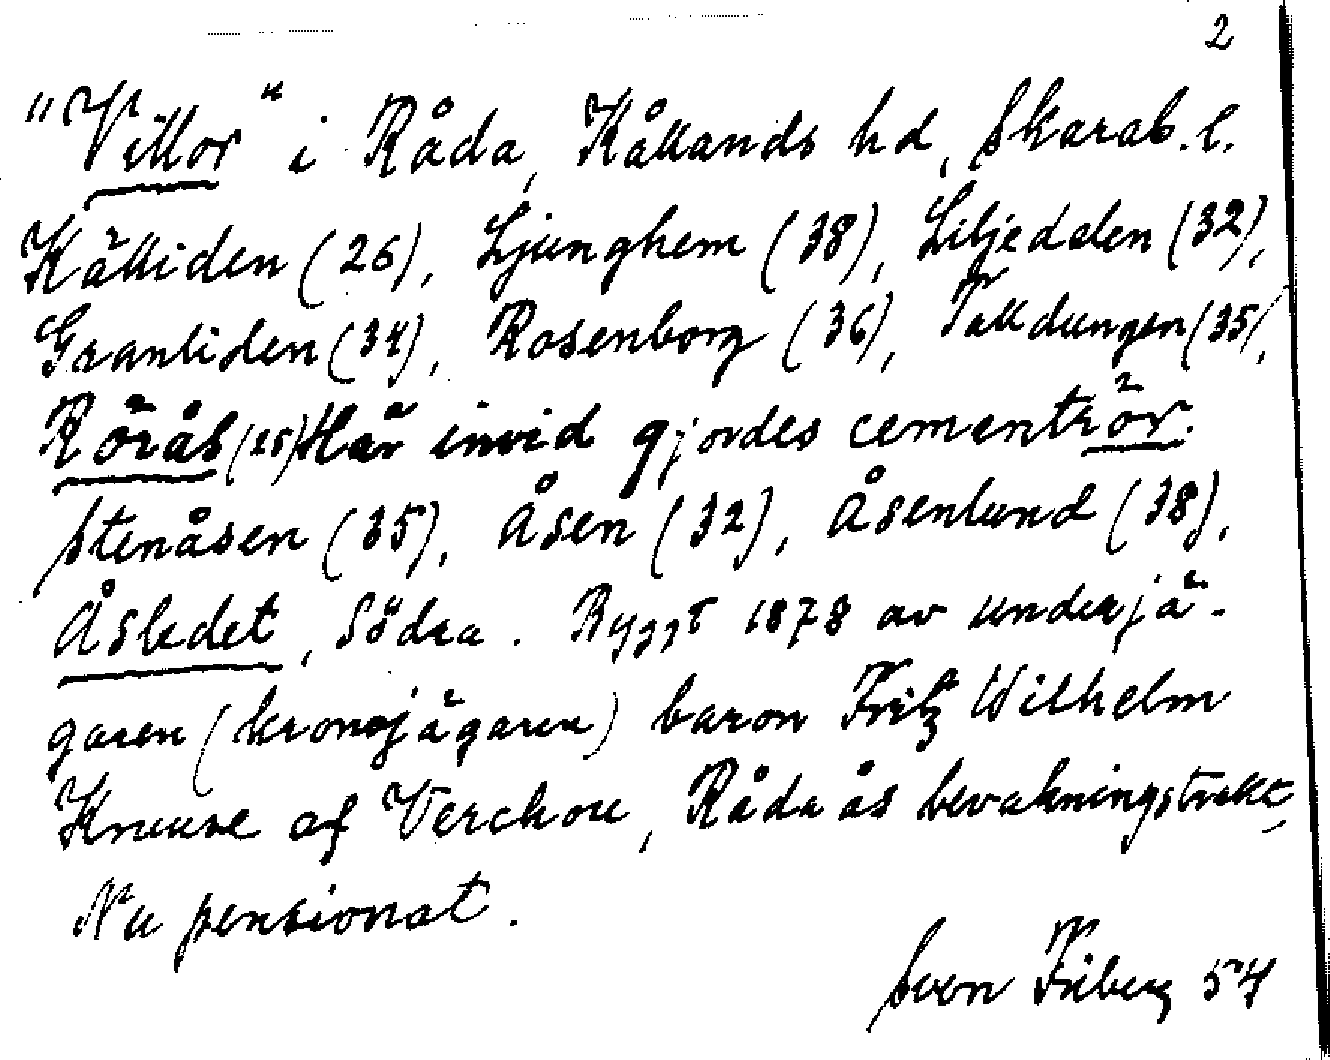 2
"Villor" i Råda, Kållands hd, Skarab. l.
Källiden (26), Ljunghem (38), Liljedalen (32),
Granliden (34), Rosenborg (36), Talldungen (35),
Rörås (25) Här invid gjordes cementrör.
Stenåsen (35), Åsen (32), Åsenlund (38),
Åsledet, Södra. Byggt 1878 av underjä-
garen (kronojägaren) baron Fritz Wilhelm
Kruuse af Verchou, Råda ås bevakningstrakt,
Nu pensionat.
Sven Friberg 54